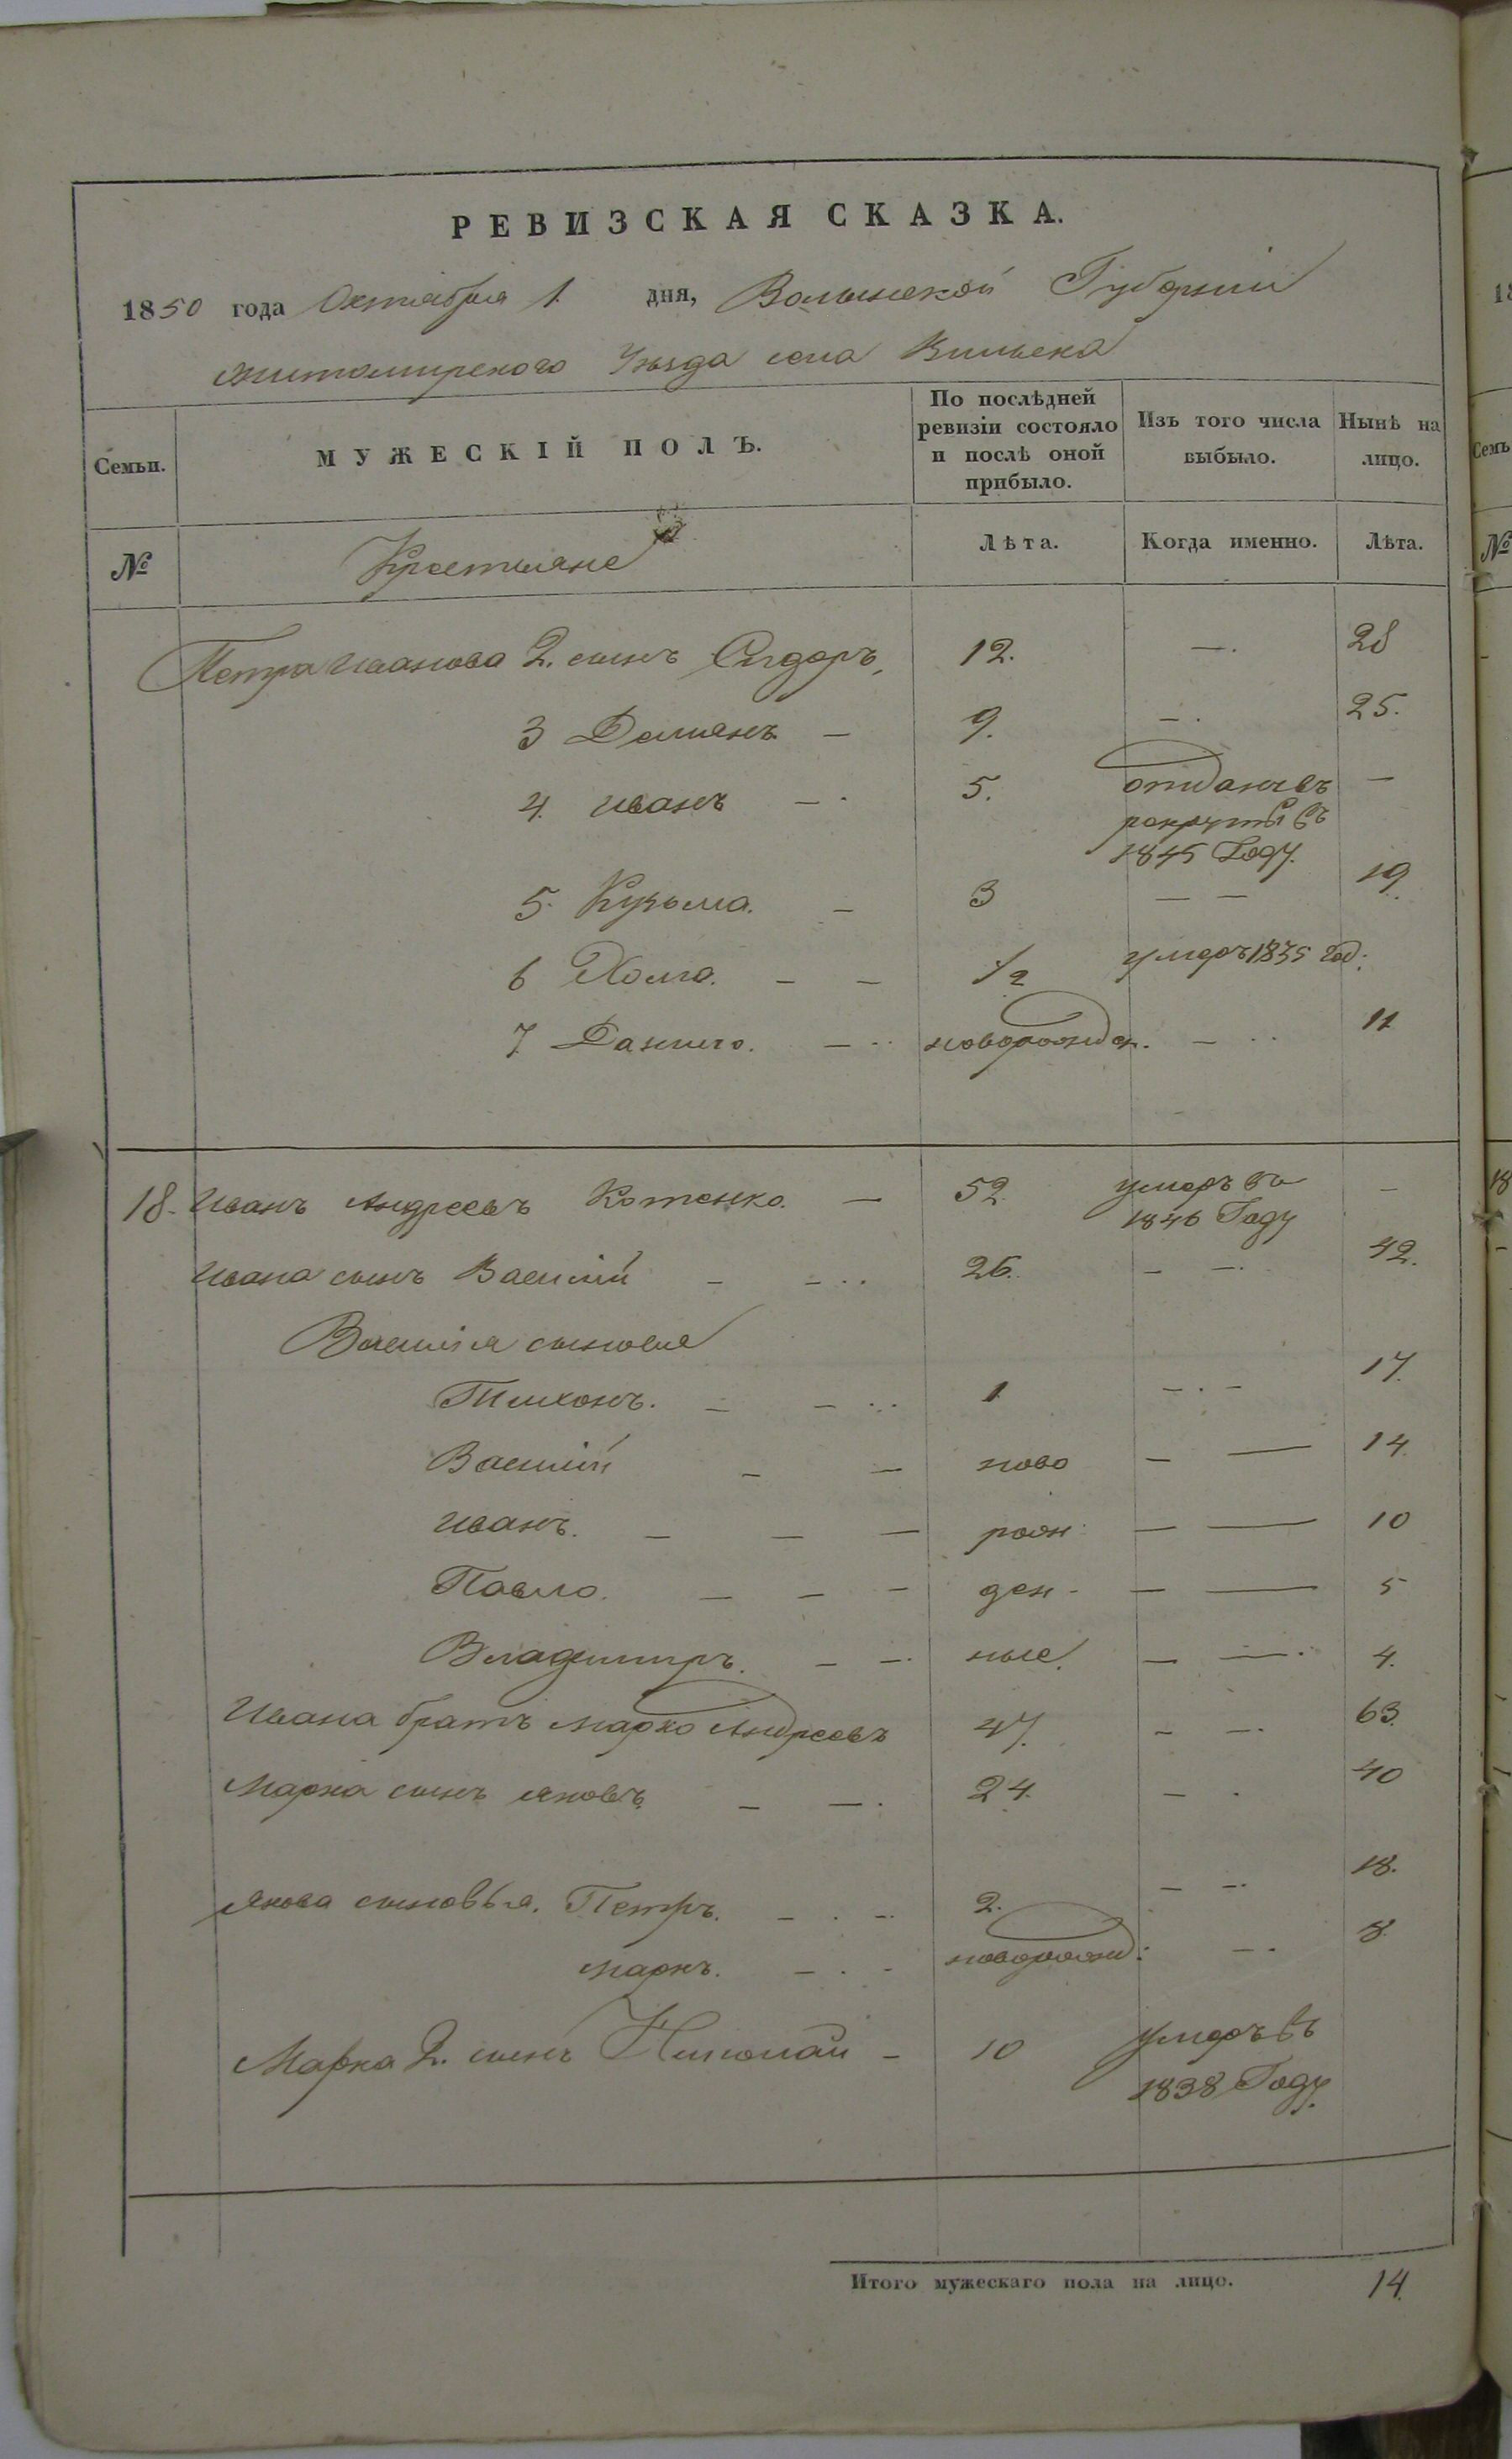 РЕВИЗСКАЯ СКАЗКА.
1850 года Октября 1 дня, Волынской Губернии
Житомирского Уезда села Вильска
Семьи. МУЖЕСКІЙ ПОЛЪ. По послѣдней ревизіи состояло и послѣ оной прибыло. Изъ того числа выбыло. Нынѣ на лицо.
№ Крестьяне Лѣта. Когда именно. Лѣта.
Петра Иванова 2. сынъ Сидоръ, 12. —. 28
3 Демянъ — 9. —. 25.
4. Иванъ —. 5. отданъ въ —
рекруты въ
1845 Году.
5. Кузьма. — 3 — — 19.
6 Хома. — — 1/2 умеръ 1835 год:
7. Данило. — .. новорожден. — .. 11
18. Иванъ Андреевъ Котенко. — 52. умеръ въ —
1846 Году
Ивана сынъ Василій — — .. 26. — —. 42.
Василія сыновья
Тихонъ. — — .. 1 — . — 17.
Василій — — ново — — 14.
Иванъ. — — — рож — — 10
Павло. — — — ден — — 5
Владимиръ. — —. ные. — —. 4.
Ивана братъ Марко Андреевъ 47. — —. 63.
Марка сынъ Яковъ. — —. 24. — . 40
Якова сыновья. Петръ. — . —. 2. — —. 18.
Маркъ. — . — новорожд: —. 8.
Марка 2. сынъ Николай — 10 умеръ въ
1838 Году.
Итого мужескаго пола на лицо. 14.